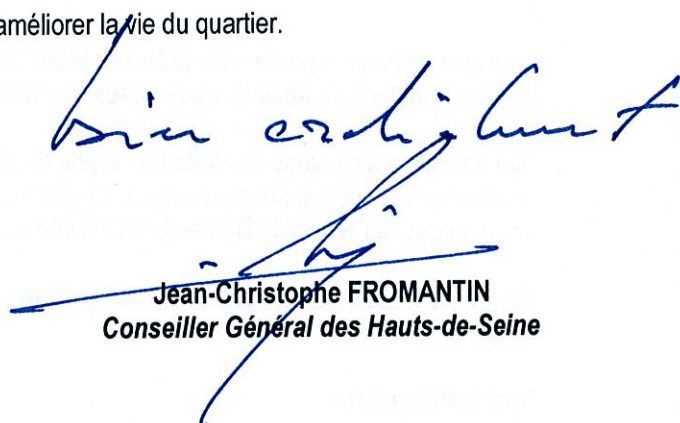 améliorer la vie du quartier.
bien cordialement
Jean-Christophe FROMANTIN
Conseiller Général des Hauts-de-Seine